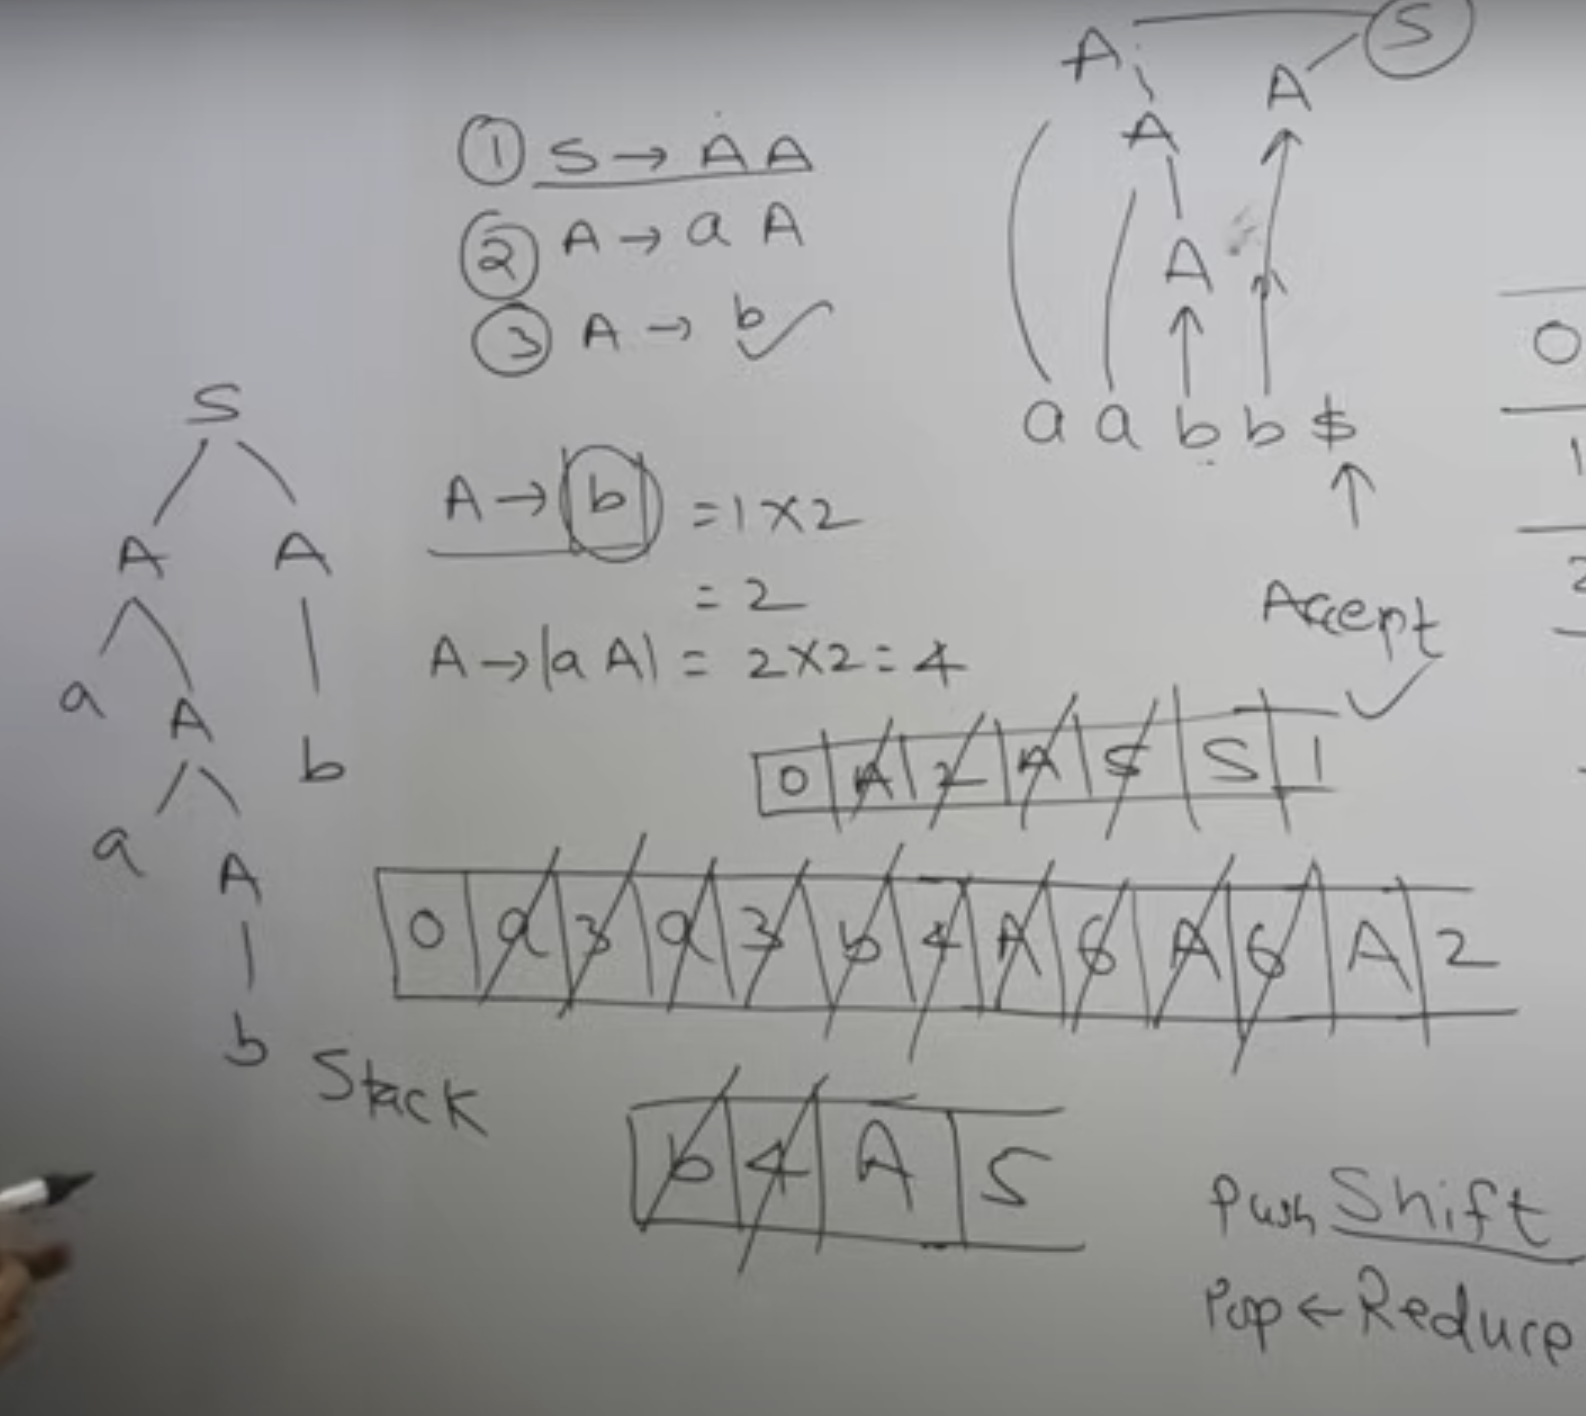 ① S → A A
② A → a A
③ A → b ✓
S
A A
a A b
a A
b
A → b = 1 × 2
= 2
A → |a A| = 2 × 2 = 4
S
A A
A
A
a a b b $
↑
Accept ✓
0
1
2
0 A 2 A 5 S 1
0 a 3 a 3 b 4 A 6 A 6 A 2
Stack
b 4 A 5
Push Shift
Pop ← Reduce